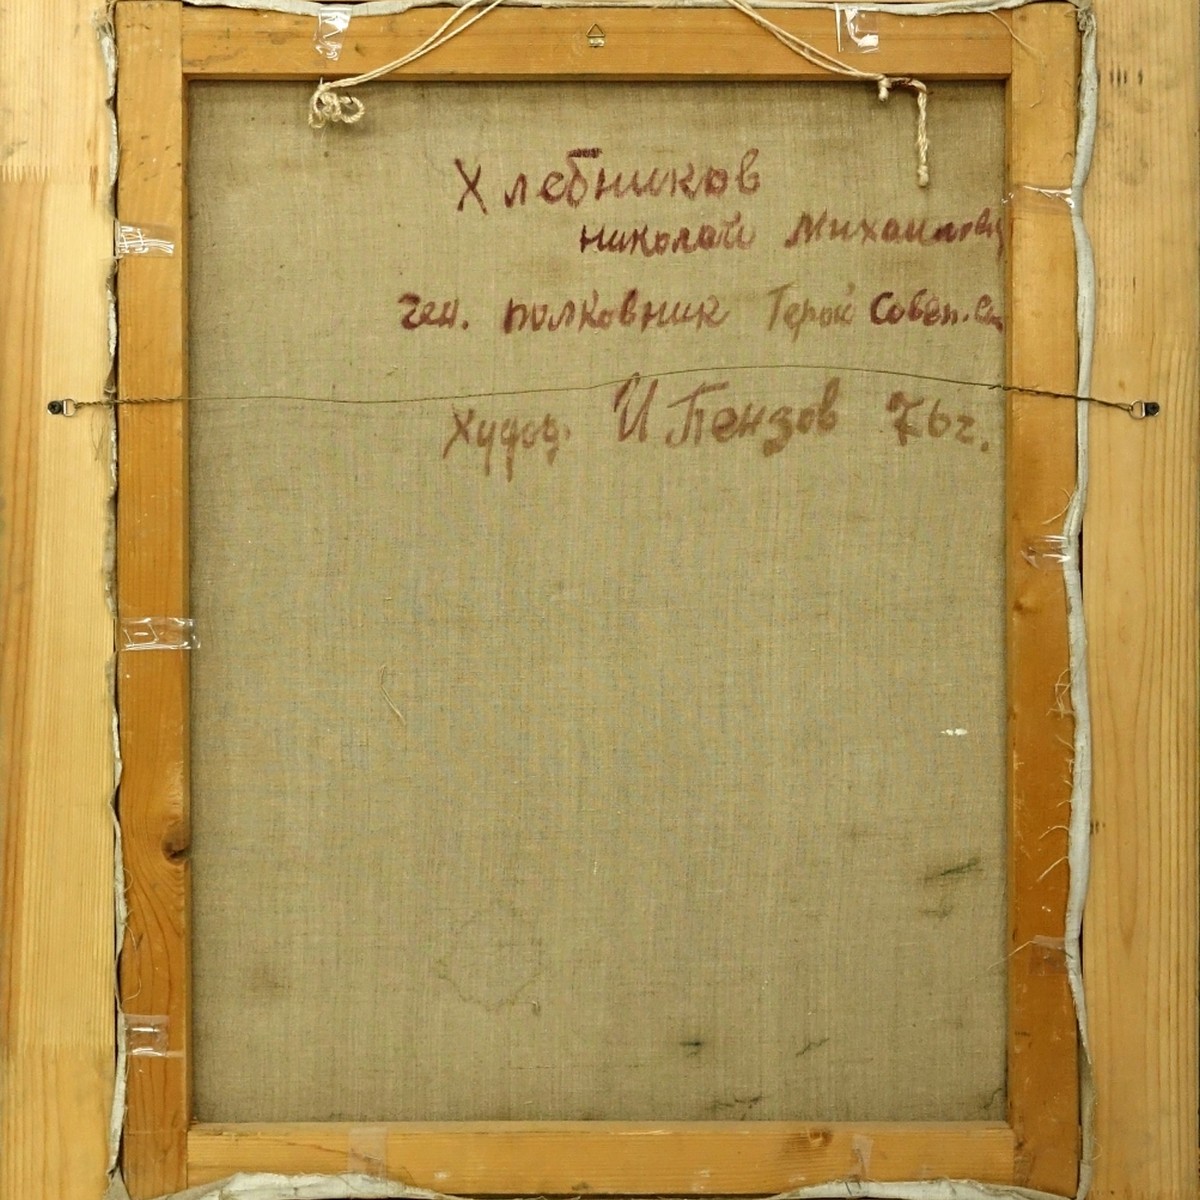 Хлебников
николай Михайлович
ген. полковник Герой Совет. Со
Худож. И Пензов 76г.